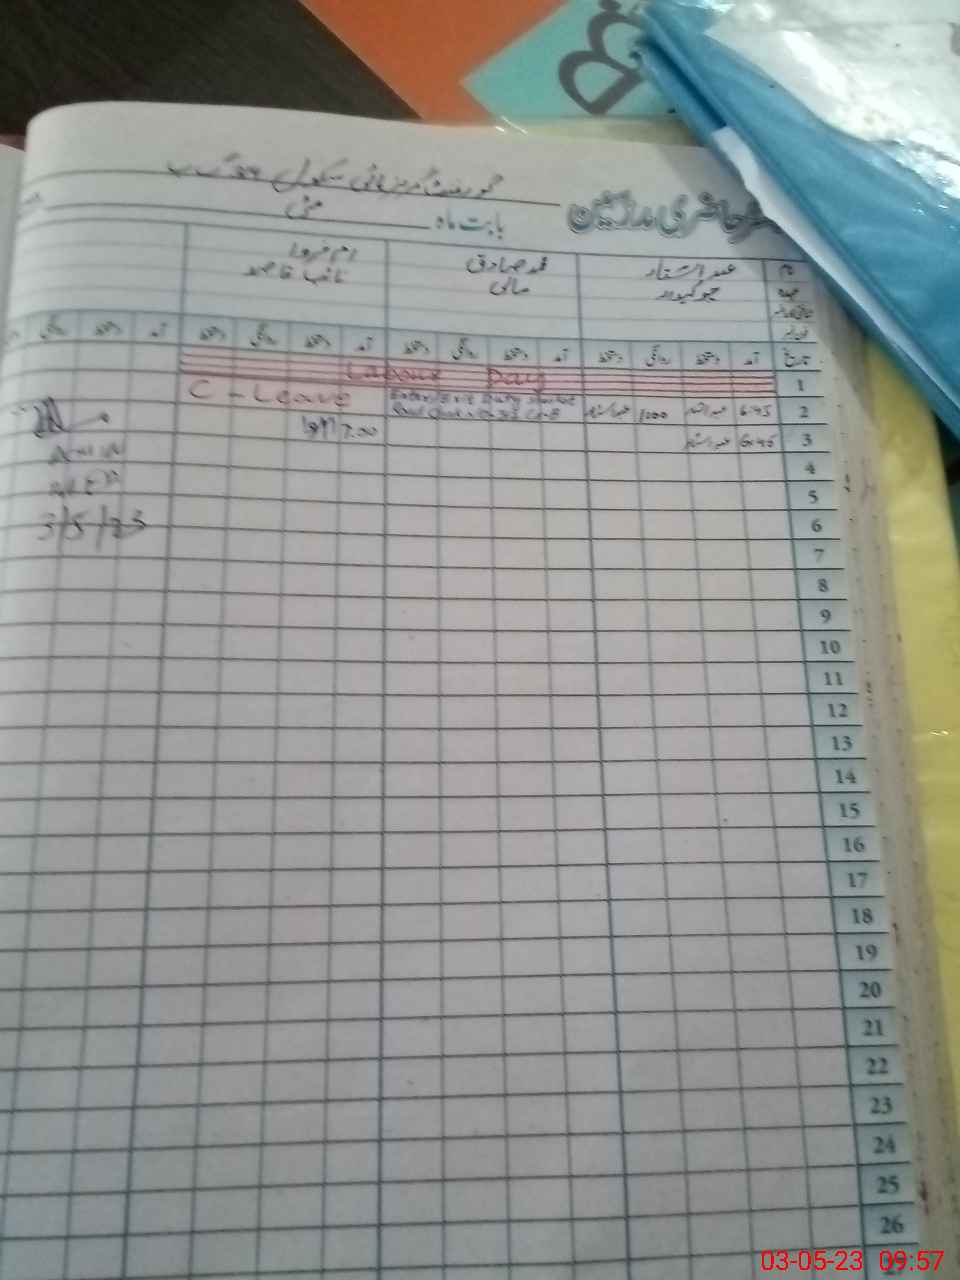 گورنمنٹ گرلز ہائی سکول
حاضری مدرسین
بابت ماہ مئی
نام عبدالستار محمد صادق ام فروا
عہدہ چوکیدار مالی نائب قاصد
تاریخ آمد دستخط روانگی دستخط آمد دستخط روانگی دستخط آمد دستخط روانگی دستخط آمد دستخط روانگی
1 Labour Day
2 6:45 عبدالستار 1000 عبدالستار Duty C-Leave
3 6:45 عبدالستار 7.00
4
5
3/5/23
6
7
8
9
10
11
12
13
14
15
16
17
18
19
20
21
22
23
24
25
26
03-05-23 09:57